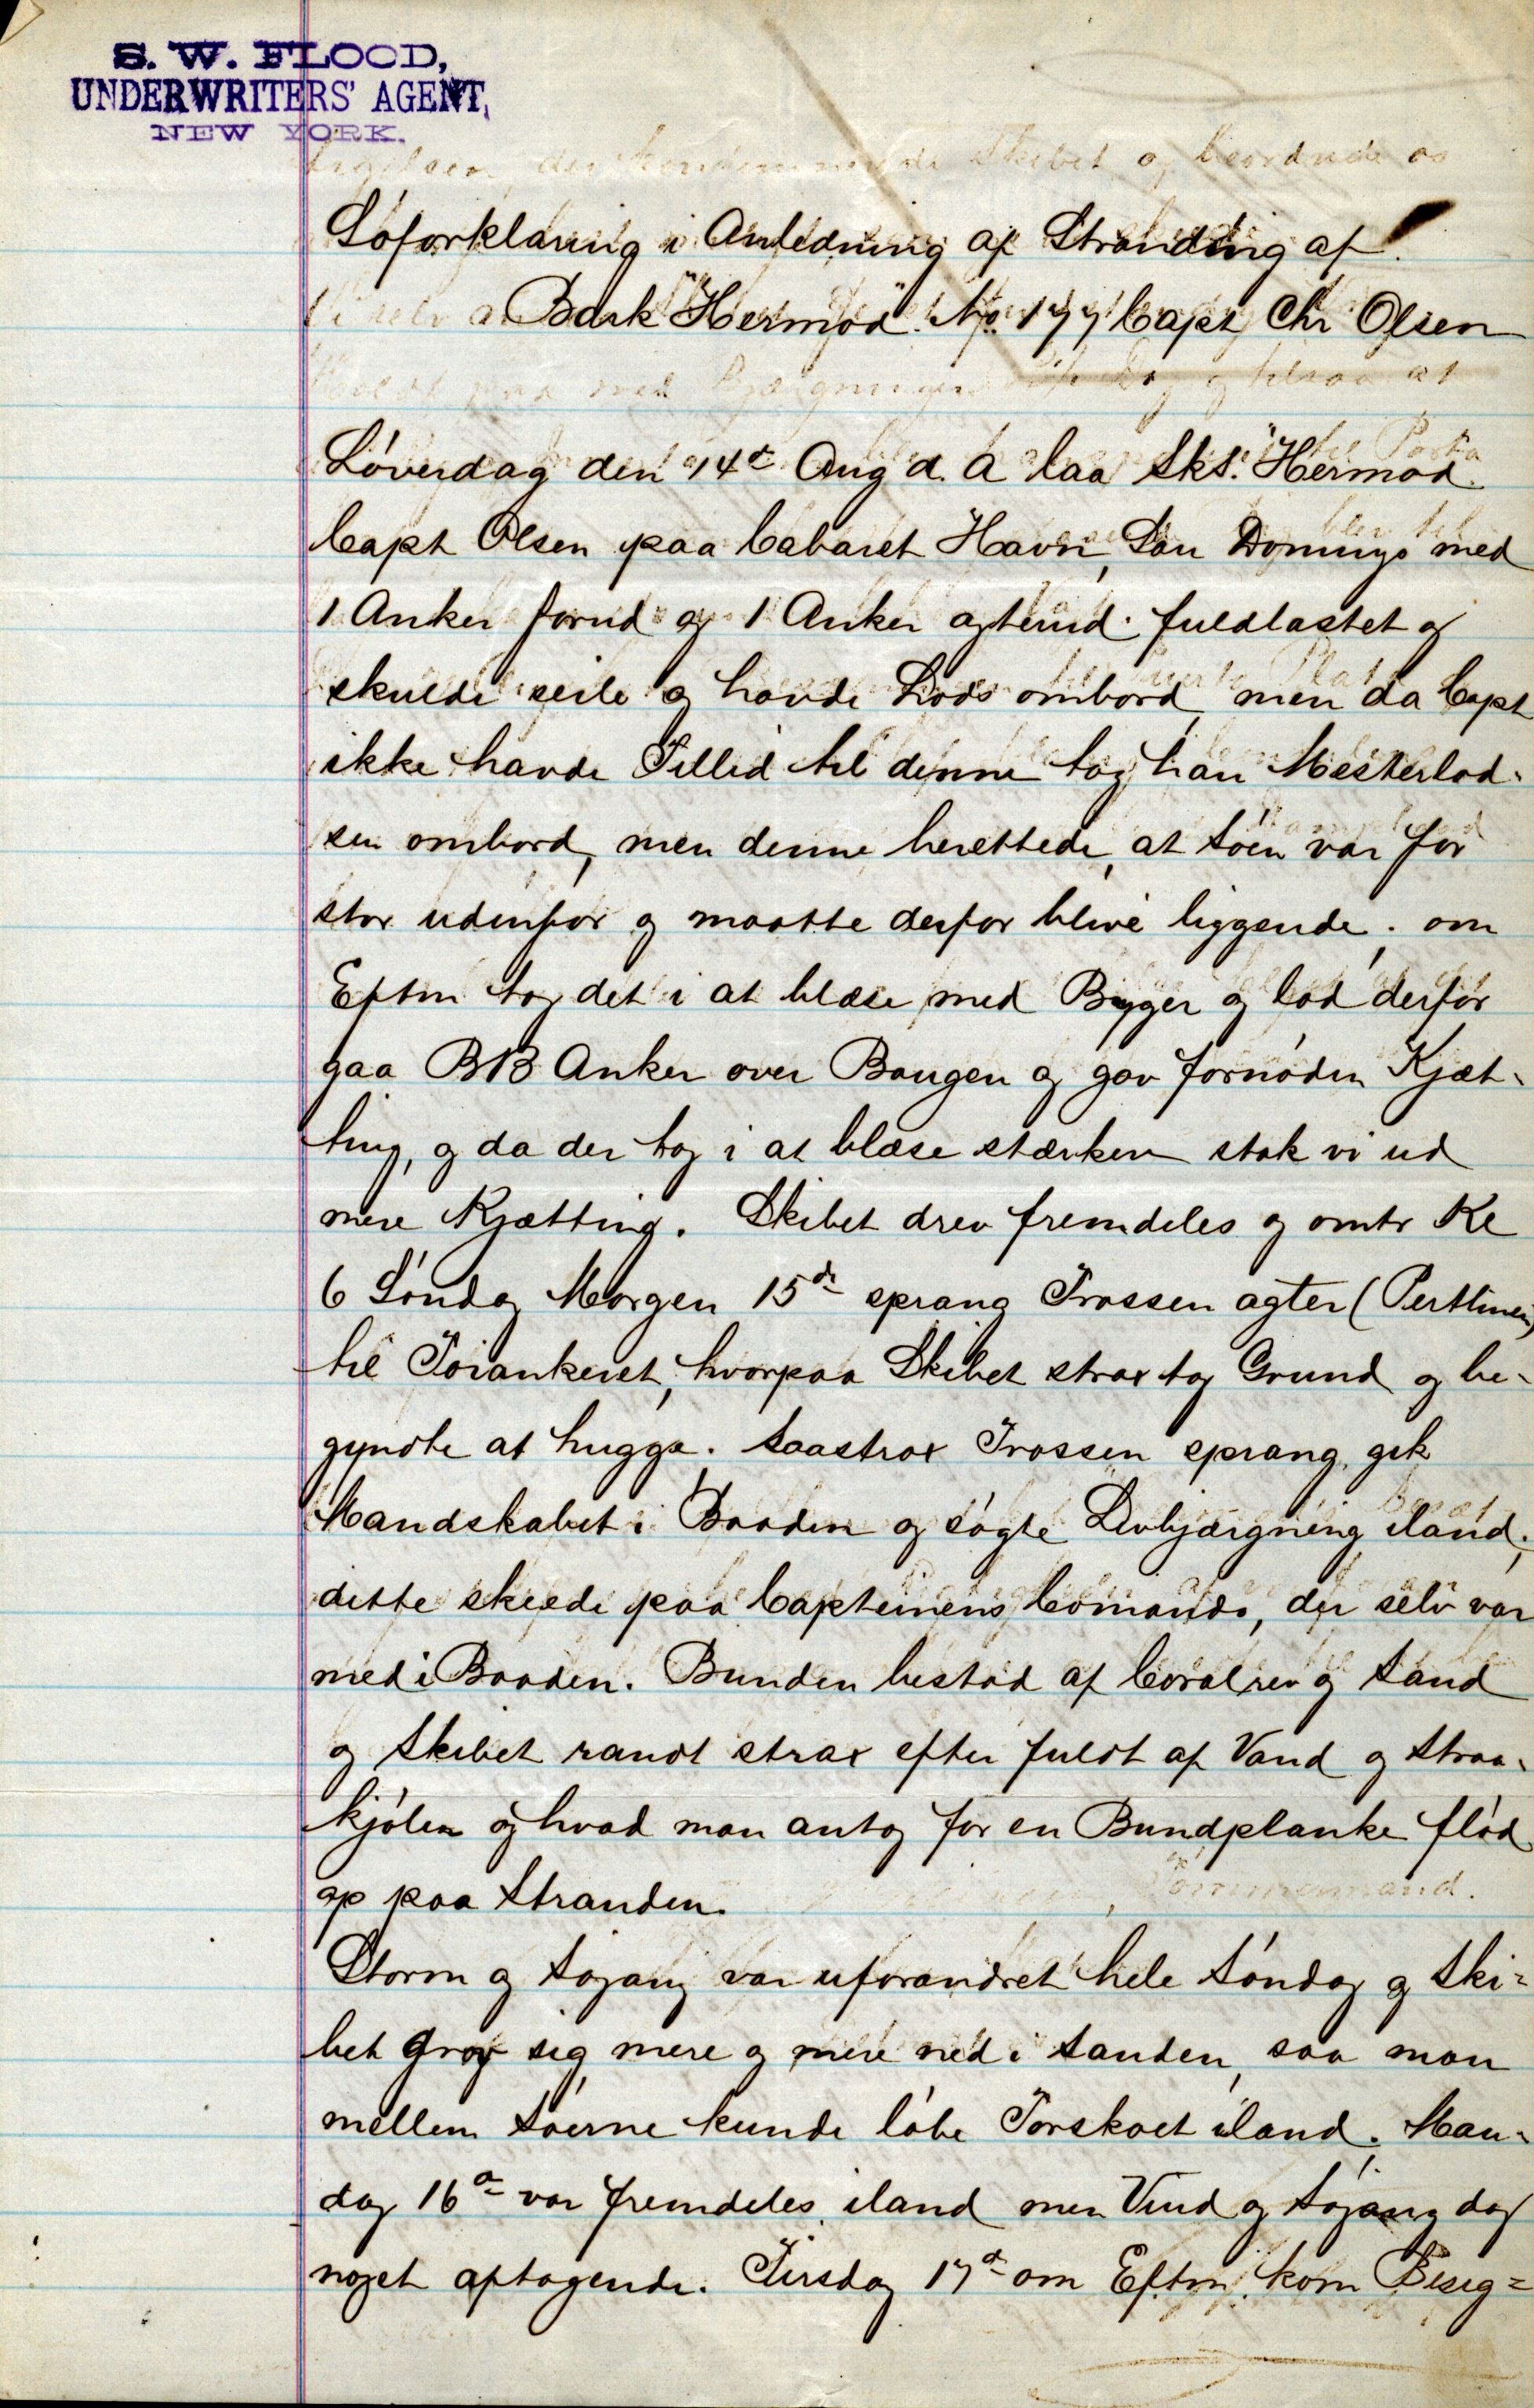 S. W. FLOOD,
UNDERWRITERS' AGENT,
NEW YORK.
Søforklaring i Anledning af Stranding af
Bark "Hermod". No. 177 Capt Chr Olsen
Løverdag den 14d Aug d. A laa Sks. "Hermod"
Capt Olsen paa Cabaret Havn, San Domingo med
1 Anker forud og 1 Anker agterud. fuldlastet og
skulde seile og havde Lods ombord, men da Capt
ikke havde Tillid til denne tog han Mesterlod-
sen ombord, men denne berettede, at Søen var for
stor udenfor og maatte derfor blive liggende; om
Eftm tog det i at blæse med Byger og lod derfor
gaa BB Anker over Bougen og gav fornøden Kjæt-
ting, og da der tog i at blæse stærkere stak vi ud
mere Kjætting. Skibet drev fremdeles og omtr Kl
6 Søndag Morgen 15de sprang Trossen agter (Pertlinen)
til Tøiankeret, hvorpaa Skibet strax tog Grund og be-
gyndte at hugge. Saastrax Trossen sprang, gik
Mandskabet i Baaden og søgte Livbjærgning iland;
dette skeede paa Capteinens Comando, der selv var
med i Baaden. Bunden bestod af Coralrev og Sand
og Skibet randt strax efter fuldt af Vand og Straa-
kjølen og hvad man antog for en Bundplanke flød
op paa Stranden.
Storm og Søgang var uforandret hele Søndag og Ski=
bet grov sig mere og mere ned i Sanden, saa man
mellem Søerne kunde løbe Tørskoet iland. Man-
dag 16d var fremdeles iland men Vind og Søgang dog
noget aftagende. Tirsdag 17d om Eftm. kom Besig=